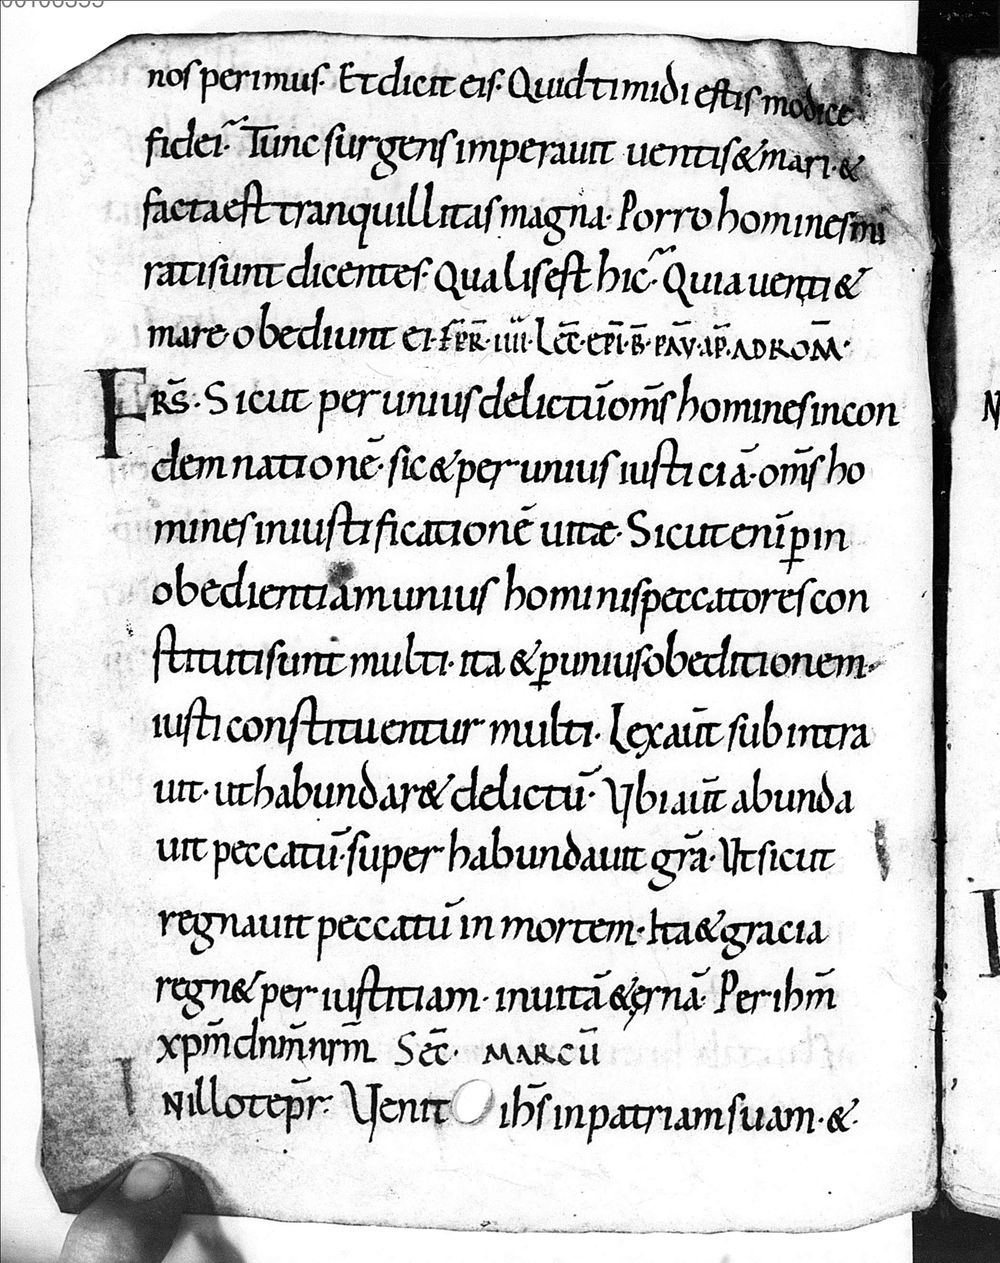 nos perimus. Et dicit eis. Quid timidi estis modice
fidei. Tunc surgens imperauit uentis & mari. &
facta est tranquillitas magna. Porro homines mi
rati sunt dicentes. Qualis est hic. Quia uenti &
mare obediunt ei. FR̄ IIII. Lec̄. EPĪ. B̄. PAV̄. AP̄. AD ROM̄.
FRS̄. Sicut per unius delictū om̄s homines in con
demnationē. sic & per unius iusticiā. om̄s ho
mines in iustificationē uitae. Sicut enī ꝑ in
obedientiam unius hominis peccatores con
stituti sunt multi. ita & ꝑ unius obeditionem.
iusti constituentur multi. Lex aūt subintra
uit. ut habundar& delictū. Vbi aūt abunda
uit peccatū. super habundauit gr̄a. Vt sicut
regnauit peccatū in mortem. Ita & gracia
regn& per iustitiam. in uitā &ernā. Per ih̄m
xp̄m dn̄m nr̄m Sec̄. MARCŪ
INillo tep̄r. Venit ih̄s in patriam suam. &